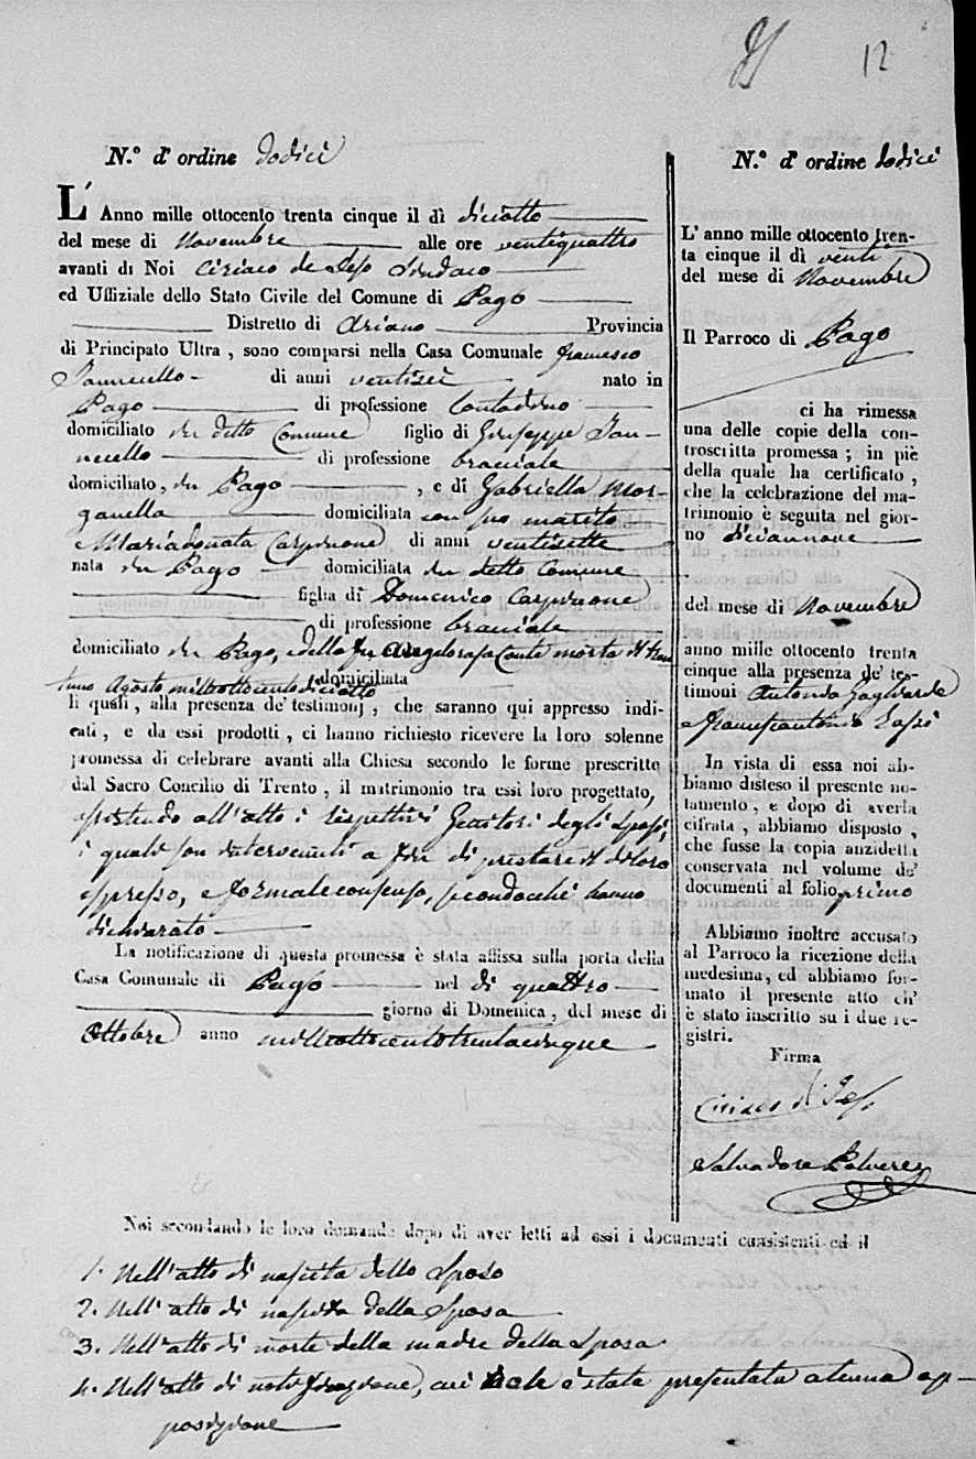 12
N.º d'ordine dodici
L'Anno mille ottocento trenta cinque il dì diciotto
del mese di Novembre alle ore ventiquattro
avanti di Noi Ciriaco de Leso Sindaco
ed Uffiziale dello Stato Civile del Comune di Pago
Distretto di Ariano Provincia
di Principato Ultra, sono comparsi nella Casa Comunale Francesco
Iannicello di anni ventisei nato in
Pago di professione Contadino
domiciliato in detto Comune figlio di Giuseppe Ian-
nicello di professione bracciale
domiciliato, in Pago, e di Gabriella Mor-
ganella domiciliata con suo marito
e Mariadonata Carpinone di anni ventisette
nata in Pago domiciliata in detto Comune
figlia di Domenico Carpinone
di professione bracciale
domiciliato in Pago, e della fu Angelarosa Conte morta il
Agosto milleottocentodiciotto domiciliata
li quali, alla presenza de' testimonj, che saranno qui appresso indi-
cati, e da essi prodotti, ci hanno richiesto ricevere la loro solenne
promessa di celebrare avanti alla Chiesa secondo le forme prescritte
dal Sacro Concilio di Trento, il matrimonio tra essi loro progettato,
assistendo all'atto i rispettivi Genitori degli Sposi,
i quali son intervenuti a fin di prestare il di loro
espresso, e formale consenso, secondocchè hanno
dichiarato
La notificazione di questa promessa è stata affissa sulla porta della
Casa Comunale di Pago nel dì quattro
giorno di Domenica, del mese di
Ottobre anno milleottocentotrentacinque
N.º d'ordine dodici
L'anno mille ottocento tren-
ta cinque il dì venti
del mese di Novembre
Il Parroco di Pago
ci ha rimessa
una delle copie della con-
troscritta promessa; in piè
della quale ha certificato,
che la celebrazione del ma-
trimonio è seguita nel gior-
no diciannove
del mese di Novembre
anno mille ottocento trenta
cinque alla presenza de' tes-
timoni Antonio Gagliarde
e Francescantonio
In vista di essa noi ab-
biamo disteso il presente no-
tamento, e dopo di averla
cifrata, abbiamo disposto,
che fusse la copia anzidetta
conservata nel volume de'
documenti al folio primo
Abbiamo inoltre accusato
al Parroco la ricezione della
medesima, ed abbiamo for-
mato il presente atto ch'
è stato inscritto su i due re-
gistri.
Firma
Ciriaco di Leso
Salvadore Polvere
Noi secondando le loro domande dopo di aver letti ad essi i documenti consistenti ed il
1. Nell'atto di nascita dello Sposo
2. Nell'atto di nascita della Sposa
3. Nell'atto di morte della madre della Sposa
4. Nell'atto di notificazione, cui è stata presentata alcuna op-
posizione